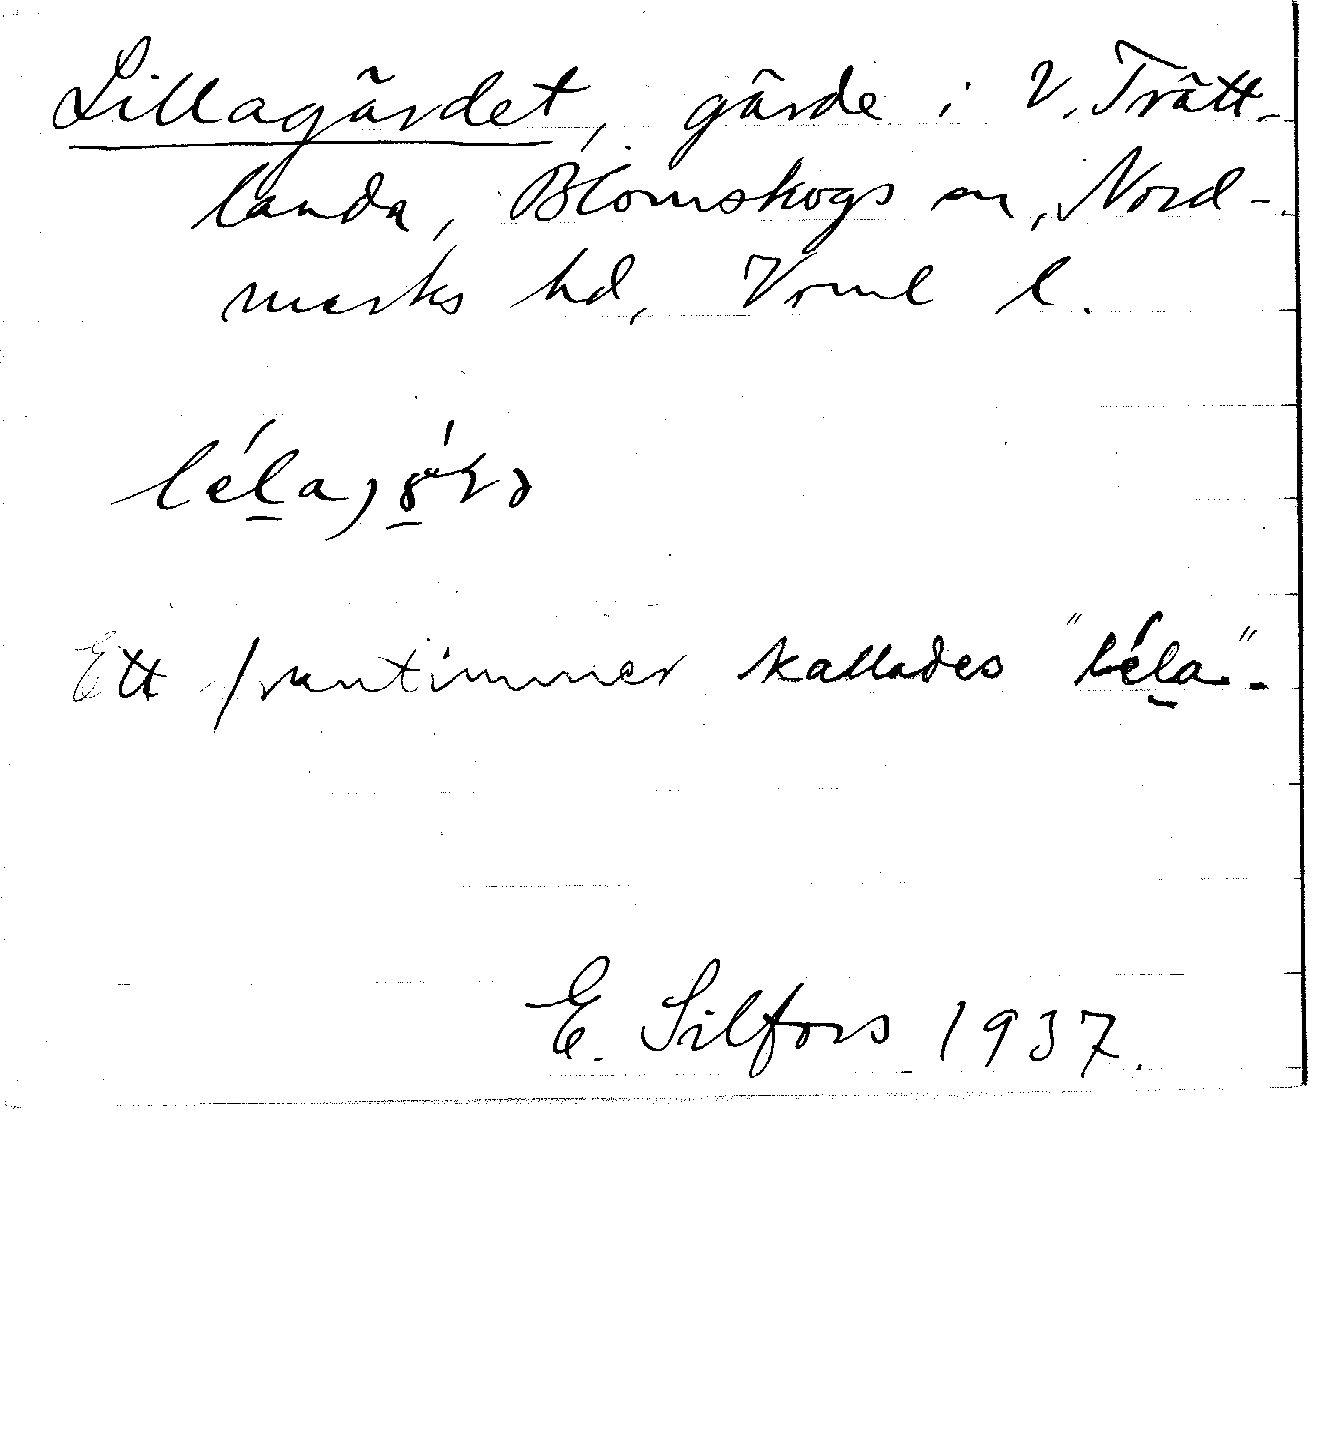 Lillagärdet, gärde i V. Trätt-
landa, Blomskogs sn, Nord-
marks hd, Vrml l.
Ett fruntimmer kallades "léla".
E. Silfors 1937.